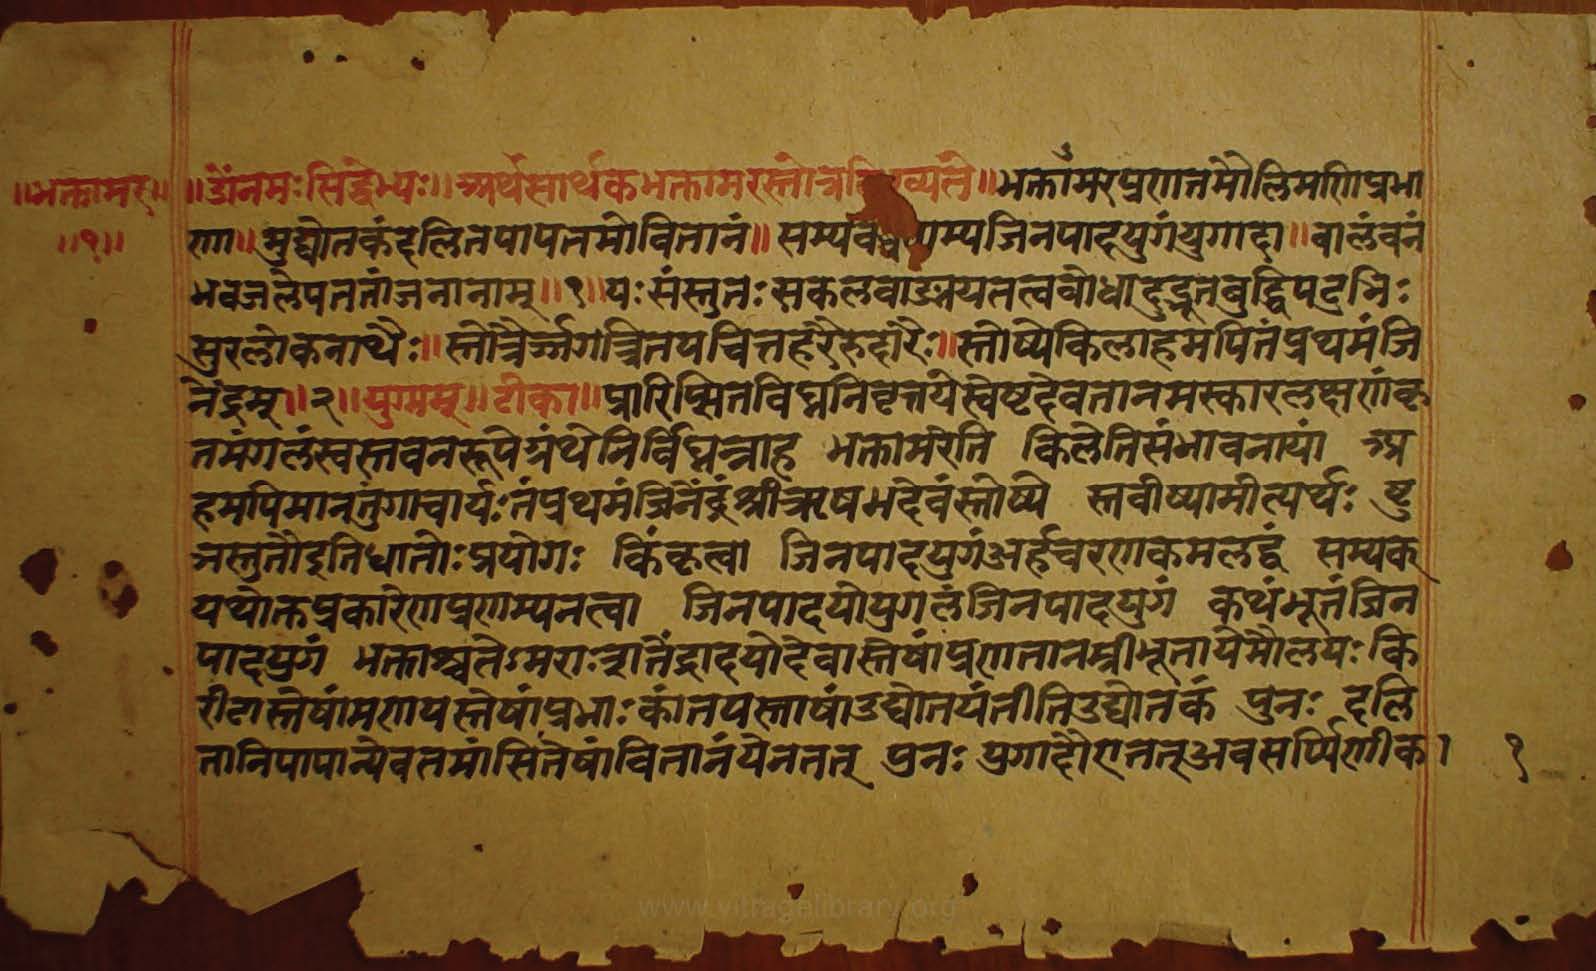 ॥भक्तामर॥
॥१॥
॥ॐनमःसिद्धेभ्यः॥अर्थसार्थकभक्तामरस्तोत्र ख्यते॥भक्तामरप्रणतमौलिमणिप्रभा
णा॥मुद्योतकंदलितपापतमोवितानं॥सम्यक् म्यजिनपादयुगंयुगादा॥वालंवनं
भवजलेपततांजनानाम्॥१॥यःसंस्तुतःसकलवाङ्मयतत्वबोधादुद्भूतबुद्धिपटुभिः
सुरलोकनाथैः॥स्तोत्रैर्जगत्त्रितयचित्तहरैरुदारैः॥स्तोष्येकिलाहमपितंप्रथमंजि
नेंद्रम्॥२॥युग्मम्॥टीका॥प्रारिप्सितविघ्ननिवृत्तयेस्वेष्टदेवतानमस्कारलक्षणंकृ
तमंगलंस्वस्तवनरूपेग्रंथेनिर्विघ्नन्नाह भक्तामरेति किलेतिसंभावनायां अ
हमपिमानतुंगाचार्यःतंप्रथमंजिनेंद्रंश्रीऋषभदेवंस्तोष्ये स्तवीष्यामीत्यर्थः ष्टु
ञस्तुतौइतिधातोःप्रयोगः किंकृत्वा जिनपादयुगंअर्हचरणकमलद्वं सम्यक्
यथोक्तप्रकारेणप्रणम्यनत्वा जिनपादयोयुगलंजिनपादयुगं कथंभूतंजिन
पादयुगं भक्ताश्चतेऽमराःशतेंद्रादयोदेवास्तेषांप्रणतानम्रीभूतायेमौलयःकि
रीटास्तेषांमणयस्तेषांप्रभाःकांतयस्तासांउद्योतयंतीतिउद्योतकं पुनः दलि
तानिपापान्येवतमांसितेषांवितानंयेनतत् पुनः युगादौ अवसर्प्पिणीक।
१
www.vitragalibrary.org